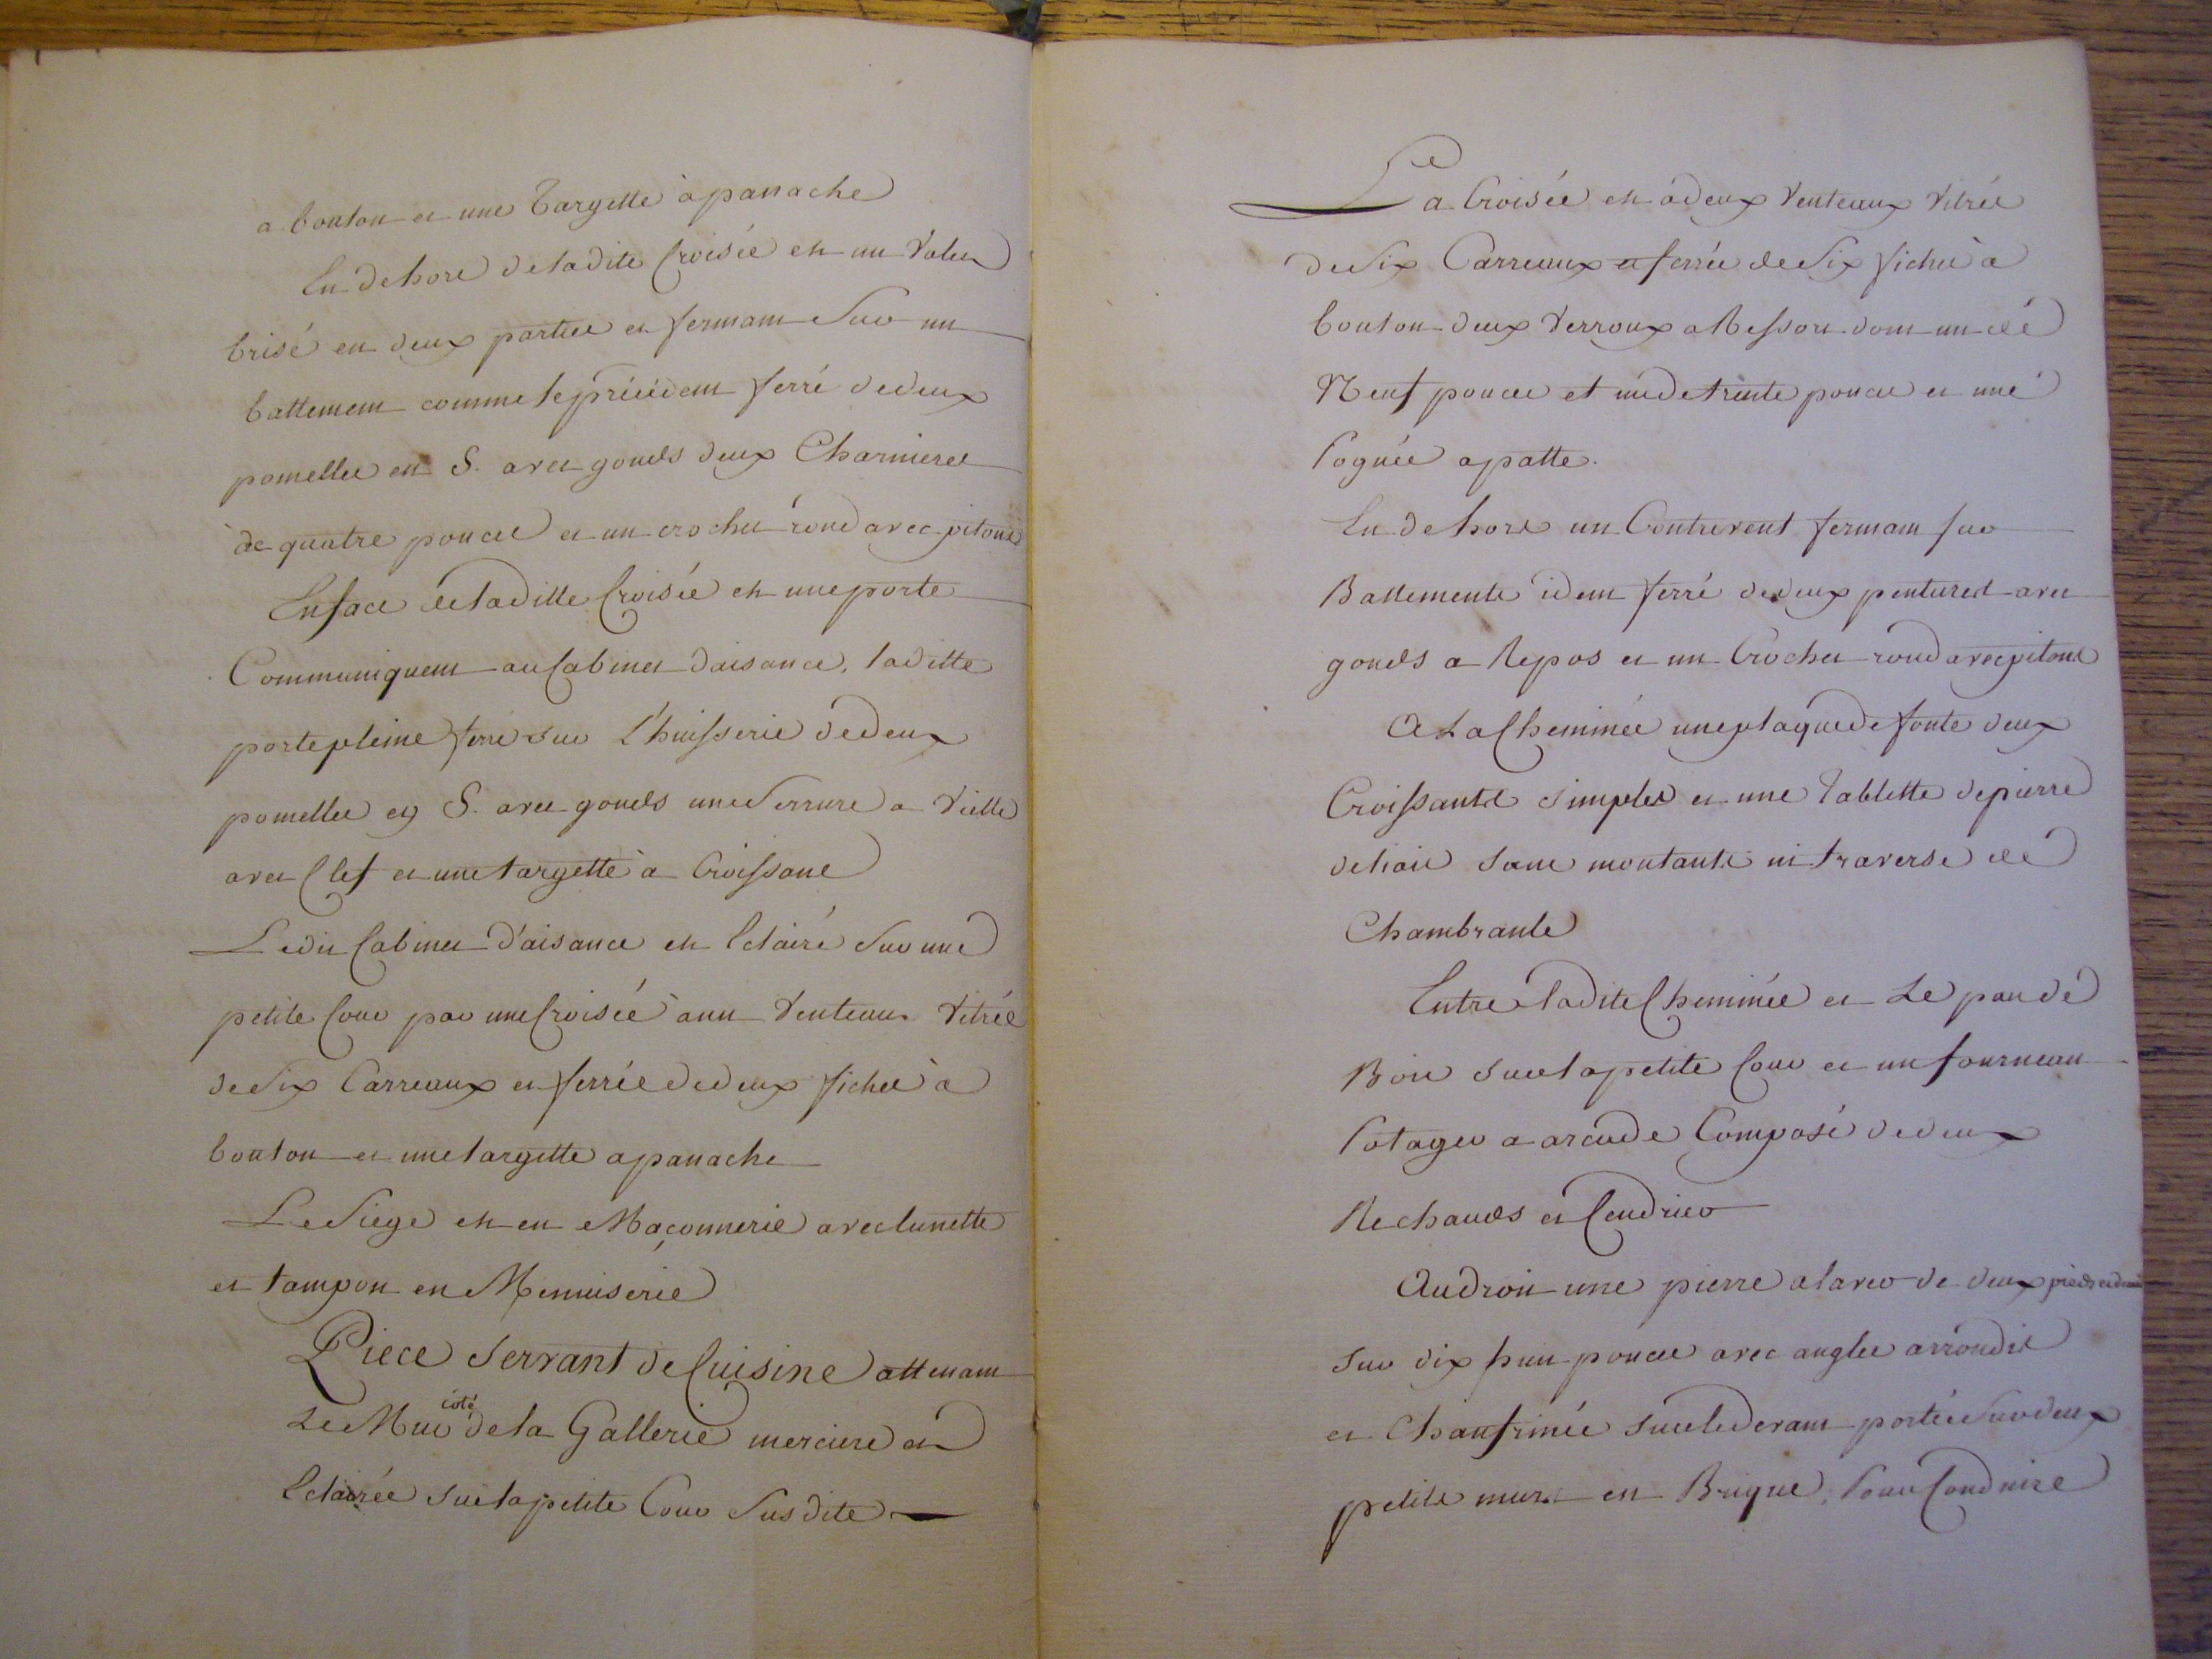 a bouton et une Targette à panache
En dehors de ladite Croisée est un Volet
brisé en deux parties et fermant Sur un
battement comme le précédent ferré de deux
pomelles en S. avec gonds deux Charnieres
de quatre pouces et un crochet rond avec pitons
En face de laditte Croisée est une porte
Communiquent au Cabinet daisance, laditte
porte pleine ferré sur l'huisserie de deux
pomelles en S. avec gonds une Serrure a Vielle
avec Clef et une targette à Croissant
Ledit Cabinet d'aisance est Eclairé Sur une
petite Cour par une Croisée à un Venteau Vitrée
de Six Carreaux et ferrée de deux fiches à
bouton et une targette a panache
Le Siege est en Maçonnerie avec lunette
et tampon en Menuiserie
Piece Servant de Cuisine attenant
Le Mur côté de la Gallerie merciere et
Eclairée sur la petite Cour Susdite
La Croisée est à deux Venteaux Vitrée
de Six Carreaux et ferrée de Six fiches à
bouton deux Verroux a Ressort dont un de
Neuf pouces et un de trente pouces et une
Pognée a patte.
En dehors un Contrevent fermant sur
Battements idem ferré de deux pentures avec
gonds a Repos et un Crochet rond avec pitons
A La Cheminée une plaque de fonte deux
Croissants simples et une Tablette de pierre
de liais sans montants ni traverse de
Chambranle
Entre ladite Cheminée et Le pan de
Bois sur la petite Cour est un fourneau
Potager a arcade Composé de deux
Rechauds et Cendrier
Au droit une pierre a laver de deux pieds et demi
sur dix huit pouces avec angles arrondis
et Chanfrinée sur le devant portée Sur deux
petits murs en Brique, Pour Conduire